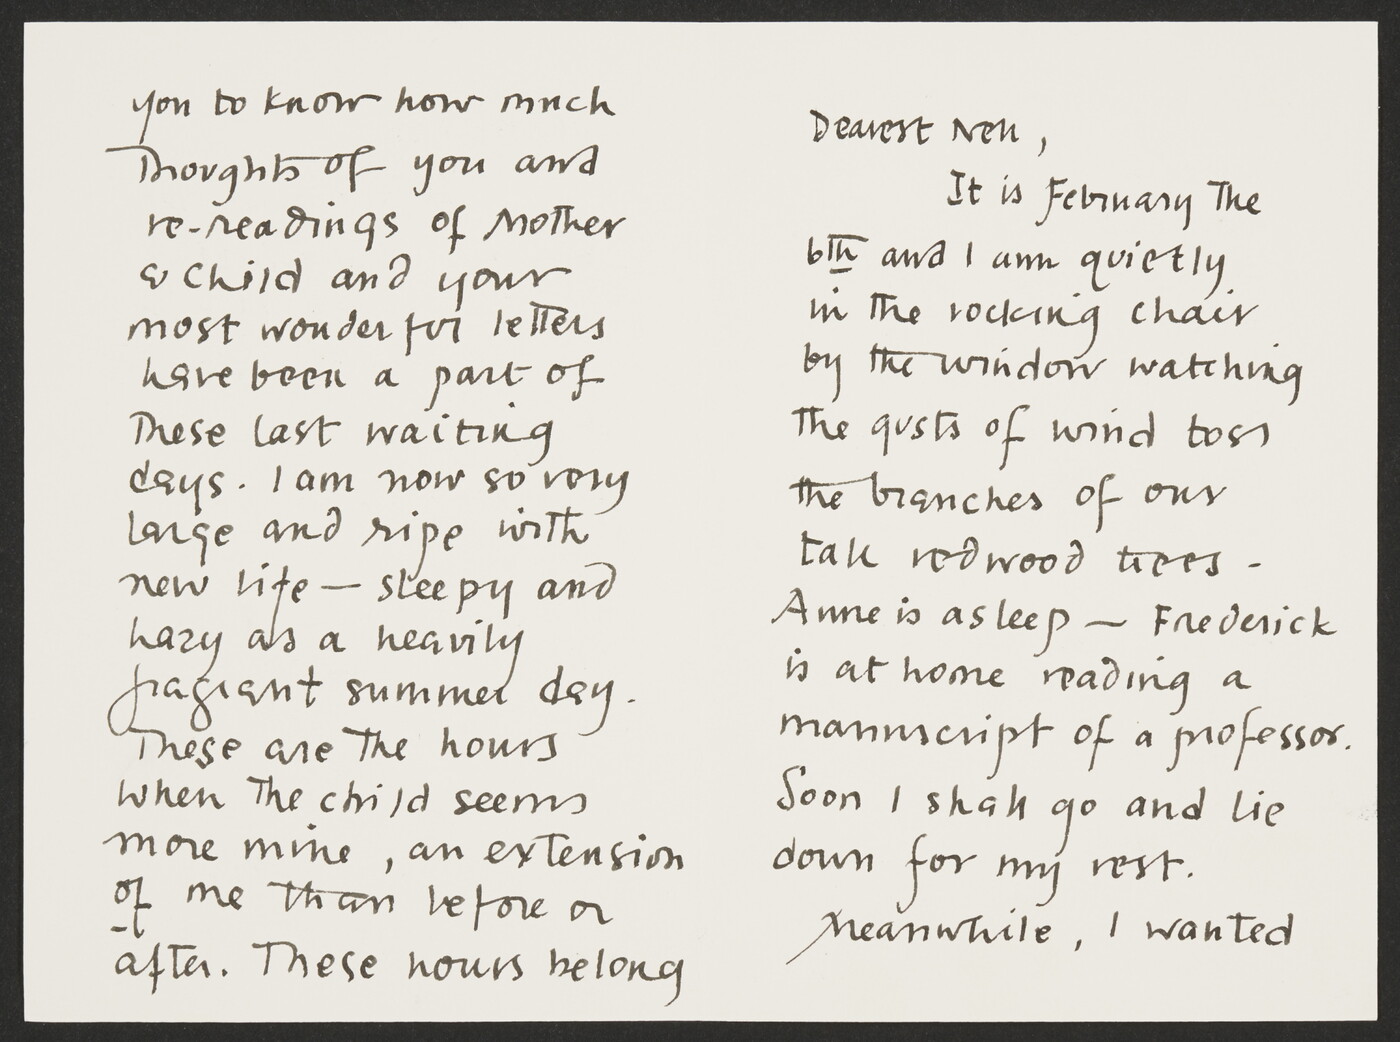 Dearest Nell,
It is February The
6th and I am quietly
in the rocking chair
by the window watching
The gusts of wind toss
the branches of our
tall redwood trees -
Anne is asleep — Frederick
is at home reading a
manuscript of a professor.
Soon I shall go and lie
down for my rest.
Meanwhile, I wanted
you to know how much
Thoughts of you and
re-readings of Mother
& Child and your
most wonderful letters
have been a part of
These last waiting
days. I am now so very
large and ripe with
new life — sleepy and
hazy as a heavily
fragrant summer day.
These are The hours
when The child seems
more mine, an extension
of me than before or
after. These hours belong